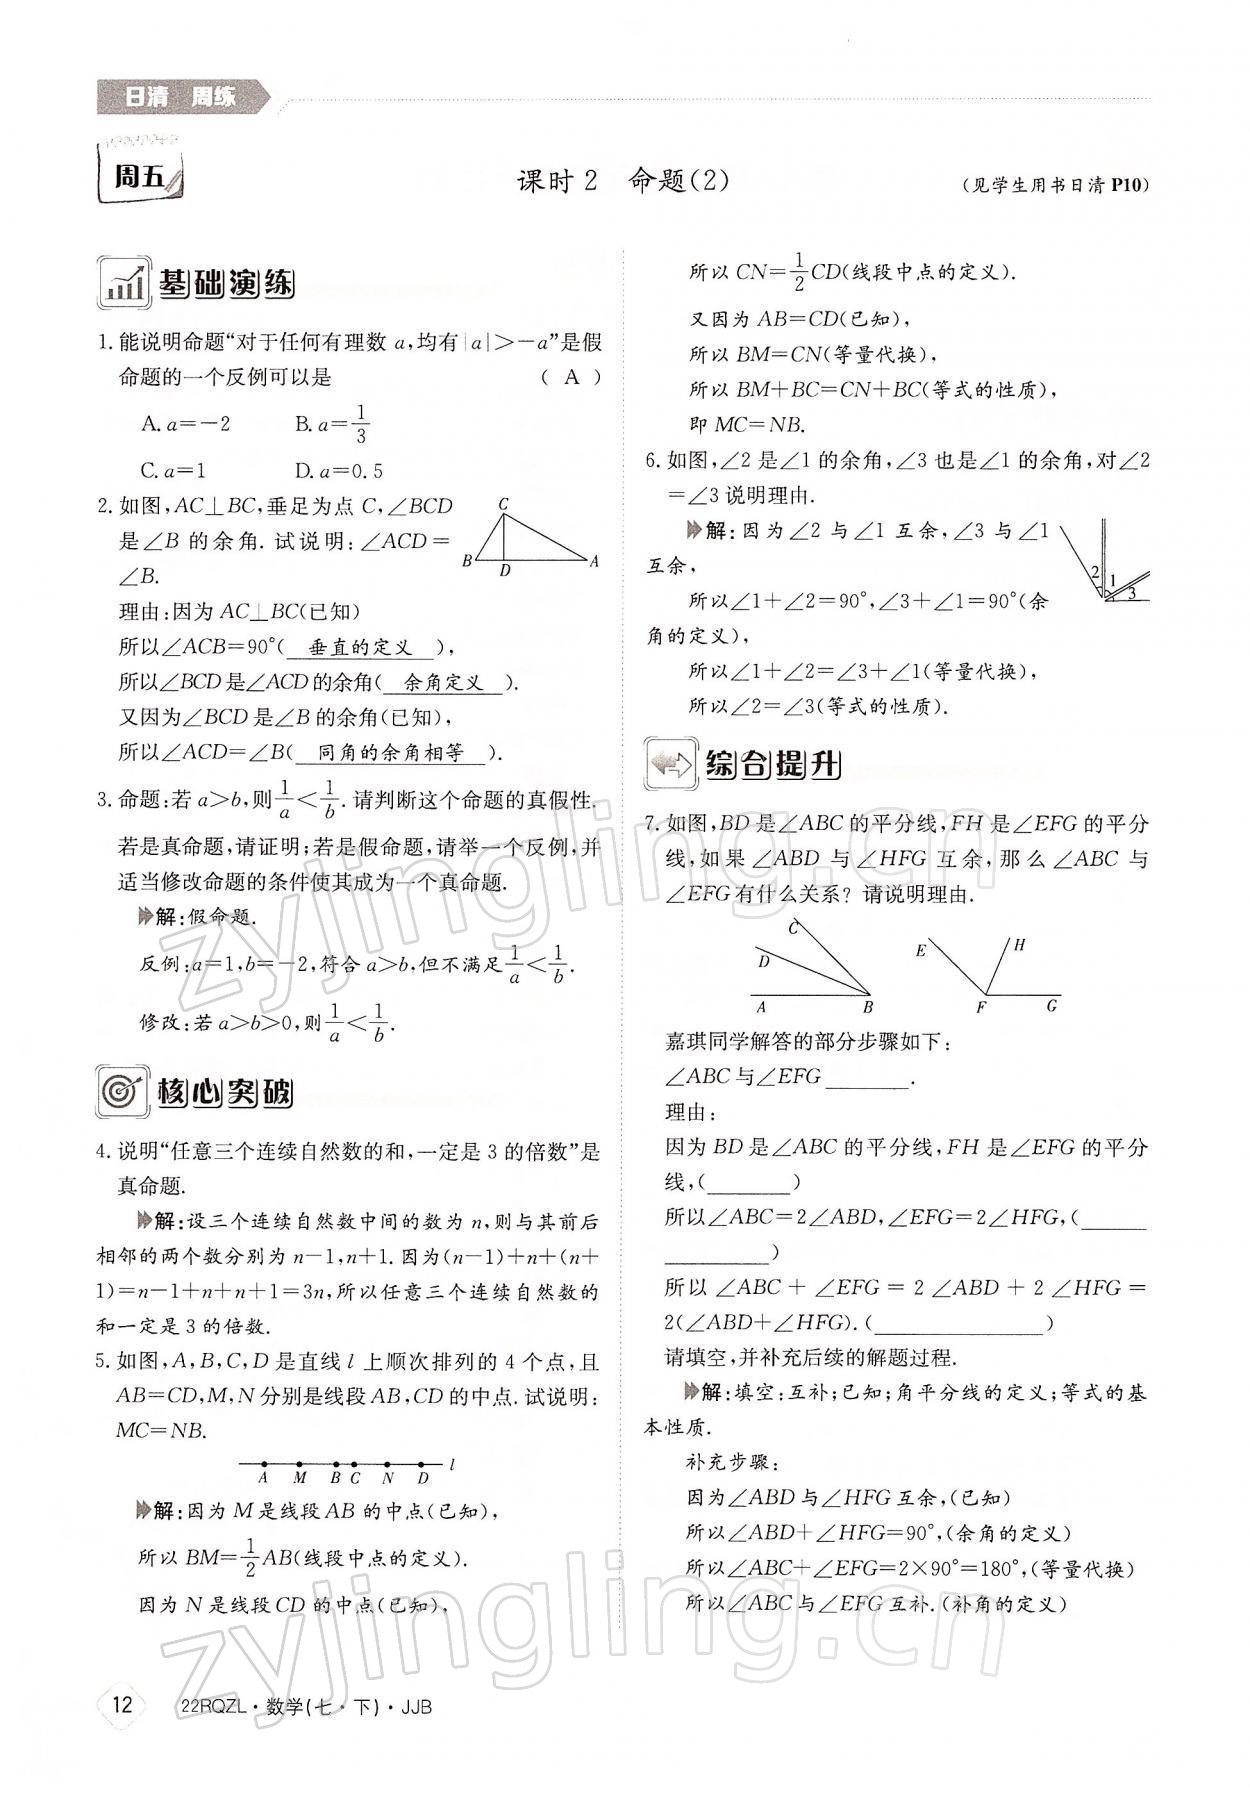 日清 周练
周五
课时2 命题(2)
(见学生用书日清P10)
基础演练
1. 能说明命题“对于任何有理数a,均有|a|>-a”是假
命题的一个反例可以是 ( A )
A. a=-2 B. a=1/3
C. a=1 D. a=0.5
2. 如图,AC⊥BC,垂足为点C,∠BCD
是∠B的余角. 试说明:∠ACD=
∠B.
C
B D A
理由:因为AC⊥BC(已知)
所以∠ACB=90°( 垂直的定义 ),
所以∠BCD是∠ACD的余角( 余角定义 ).
又因为∠BCD是∠B的余角(已知),
所以∠ACD=∠B( 同角的余角相等 ).
3. 命题:若a>b,则1/a<1/b. 请判断这个命题的真假性.
若是真命题,请证明;若是假命题,请举一个反例,并
适当修改命题的条件使其成为一个真命题.
解:假命题.
反例:a=1,b=-2,符合a>b,但不满足1/a<1/b.
修改:若a>b>0,则1/a<1/b.
核心突破
4. 说明“任意三个连续自然数的和,一定是3的倍数”是
真命题.
解:设三个连续自然数中间的数为n,则与其前后
相邻的两个数分别为n-1,n+1. 因为(n-1)+n+(n+
1)=n-1+n+n+1=3n,所以任意三个连续自然数的
和一定是3的倍数.
5. 如图,A,B,C,D是直线l上顺次排列的4个点,且
AB=CD,M,N分别是线段AB,CD的中点. 试说明:
MC=NB.
A M B C N D l
解:因为M是线段AB的中点(已知),
所以BM=1/2AB(线段中点的定义).
因为N是线段CD的中点(已知),
所以CN=1/2CD(线段中点的定义).
又因为AB=CD(已知),
所以BM=CN(等量代换),
所以BM+BC=CN+BC(等式的性质),
即MC=NB.
6. 如图,∠2是∠1的余角,∠3也是∠1的余角,对∠2
=∠3说明理由.
解:因为∠2与∠1互余,∠3与∠1
互余,
所以∠1+∠2=90°,∠3+∠1=90°(余
角的定义),
所以∠1+∠2=∠3+∠1(等量代换),
所以∠2=∠3(等式的性质).
2 1 3
综合提升
7. 如图,BD是∠ABC的平分线,FH是∠EFG的平分
线,如果∠ABD与∠HFG互余,那么∠ABC与
∠EFG有什么关系?请说明理由.
C
D
A B
E H
F G
嘉琪同学解答的部分步骤如下:
∠ABC与∠EFG________.
理由:
因为BD是∠ABC的平分线,FH是∠EFG的平分
线,(________)
所以∠ABC=2∠ABD,∠EFG=2∠HFG,(______
__________)
所以∠ABC+∠EFG=2∠ABD+2∠HFG=
2(∠ABD+∠HFG).(________________)
请填空,并补充后续的解题过程.
解:填空:互补;已知;角平分线的定义;等式的基
本性质.
补充步骤:
因为∠ABD与∠HFG互余,(已知)
所以∠ABD+∠HFG=90°,(余角的定义)
所以∠ABC+∠EFG=2×90°=180°,(等量代换)
所以∠ABC与∠EFG互补.(补角的定义)
zyjingling.com
zyjingling.com
12 22RQZL·数学(七·下)·JJB